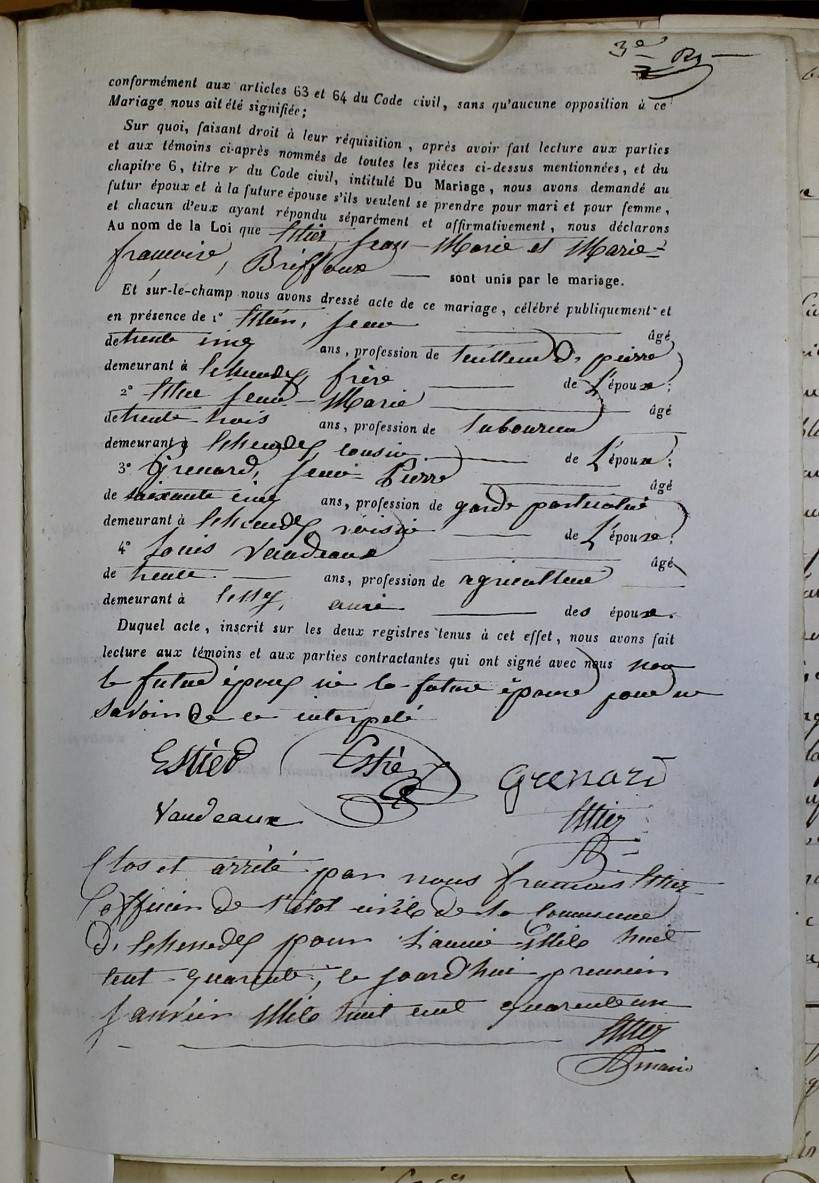 3e
conformément aux articles 63 et 64 du Code civil, sans qu'aucune opposition à ce
Mariage nous ait été signifiée;
Sur quoi, faisant droit à leur réquisition, après avoir fait lecture aux parties
et aux témoins ci-après nommés de toutes les pièces ci-dessus mentionnées, et du
chapitre 6, titre v du Code civil, intitulé Du Mariage, nous avons demandé au
futur époux et à la future épouse s'ils veulent se prendre pour mari et pour femme,
et chacun d'eux ayant répondu séparément et affirmativement, nous déclarons
Au nom de la Loi que Estier, Jean-Marie et Marie
françoise, Briffoux — sont unis par le mariage.
Et sur-le-champ nous avons dressé acte de ce mariage, célébré publiquement et
en présence de 1° Jean âgé
de trente cinq ans, profession de tailleur de pierre
demeurant à frère de L'époux;
2° Jean-Marie âgé
de trente trois ans, profession de laboureur
demeurant à cousin de L'époux;
3° Grenard, Jean Pierre âgé
de soixante cinq ans, profession de garde particulié
demeurant à voisin de L'époux;
4° Louis Vaudeaux âgé
de trente ans, profession de agriculteur
demeurant à ami des époux.
Duquel acte, inscrit sur les deux registres tenus à cet effet, nous avons fait
lecture aux témoins et aux parties contractantes qui ont signé avec nous non
le futur époux ni la future épouse pour ne
savoir de ce interpelé
Estier Estier Grenard
Vaudeaux Estier
Clos et arrêté par nous françois Estier
officier de l'état civile de la Commune
d' pour l'année Mile huit
cent quarente, le jourd'hui premier
Janvier Mile huit cent quarente un
Estier
maire